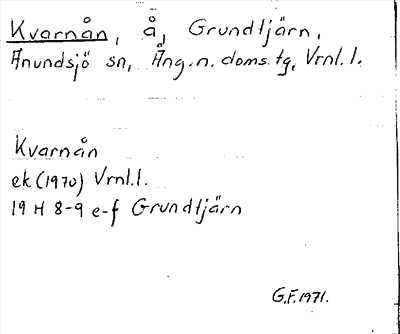 Kvarnån, å, Grundtjärn,
Anundsjö sn, Äng.n. doms.tg, Vrnl.l.
Kvarnån
ek (1970) Vrnl.l.
19 H 8-9 e-f Grundtjärn
G.F. 1971.